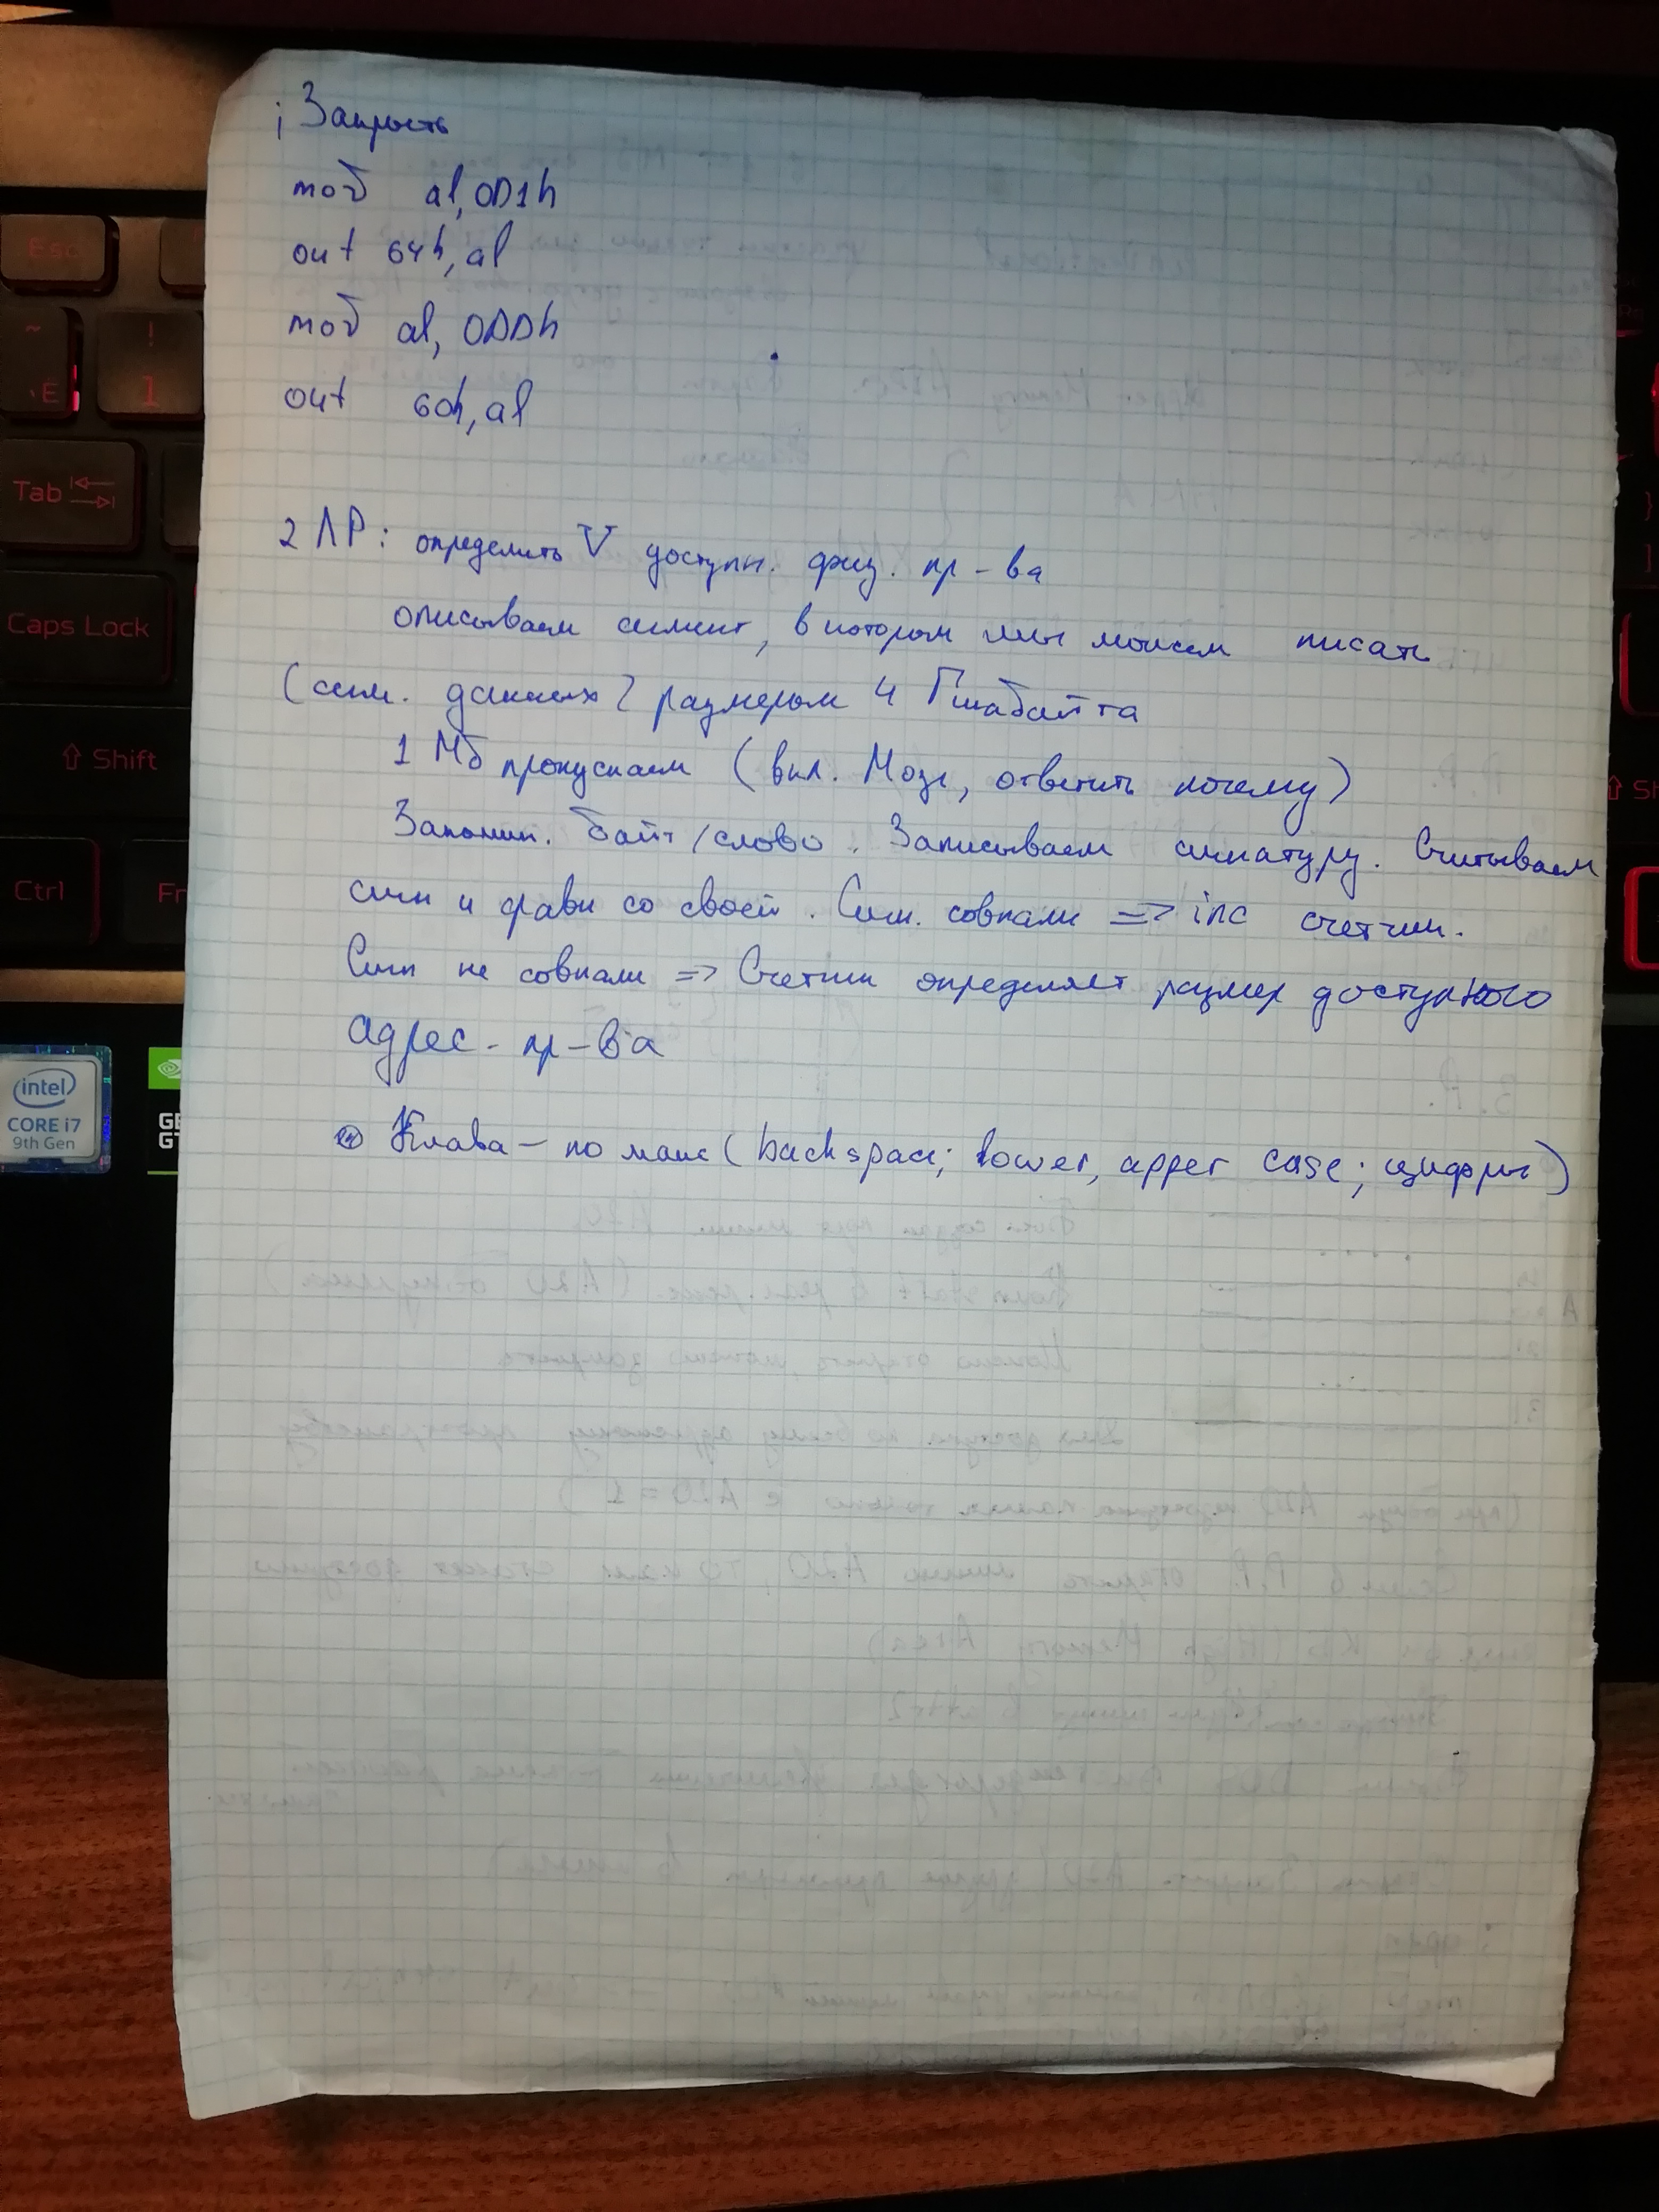 ; Закрыть
mov al, 0D1h
out 64h, al
mov al, 0DDh
out 60h, al
2 ЛР: определить V доступн. физ. пр-ва
описываем сегмент, в котором мы можем писать
(сегм. данных) размером 4 Гигабайта
1 Мб пропускаем (вкл. Мозг, ответить почему)
Запомин. байт/слово. Записываем сигнатуру. Считываем
сигн и сравн со своей. Сигн. совпали => inc счетчик.
Сигн не совпали => Счетчик определяет размер доступного
адрес. пр-ва
Клава – по макс (backspace; lower, apper case; цифры)
Esc
~
Ё
!
1
Tab
Caps Lock
Shift
Ctrl
Fn
intel
CORE i7
9th Gen
GE
GT